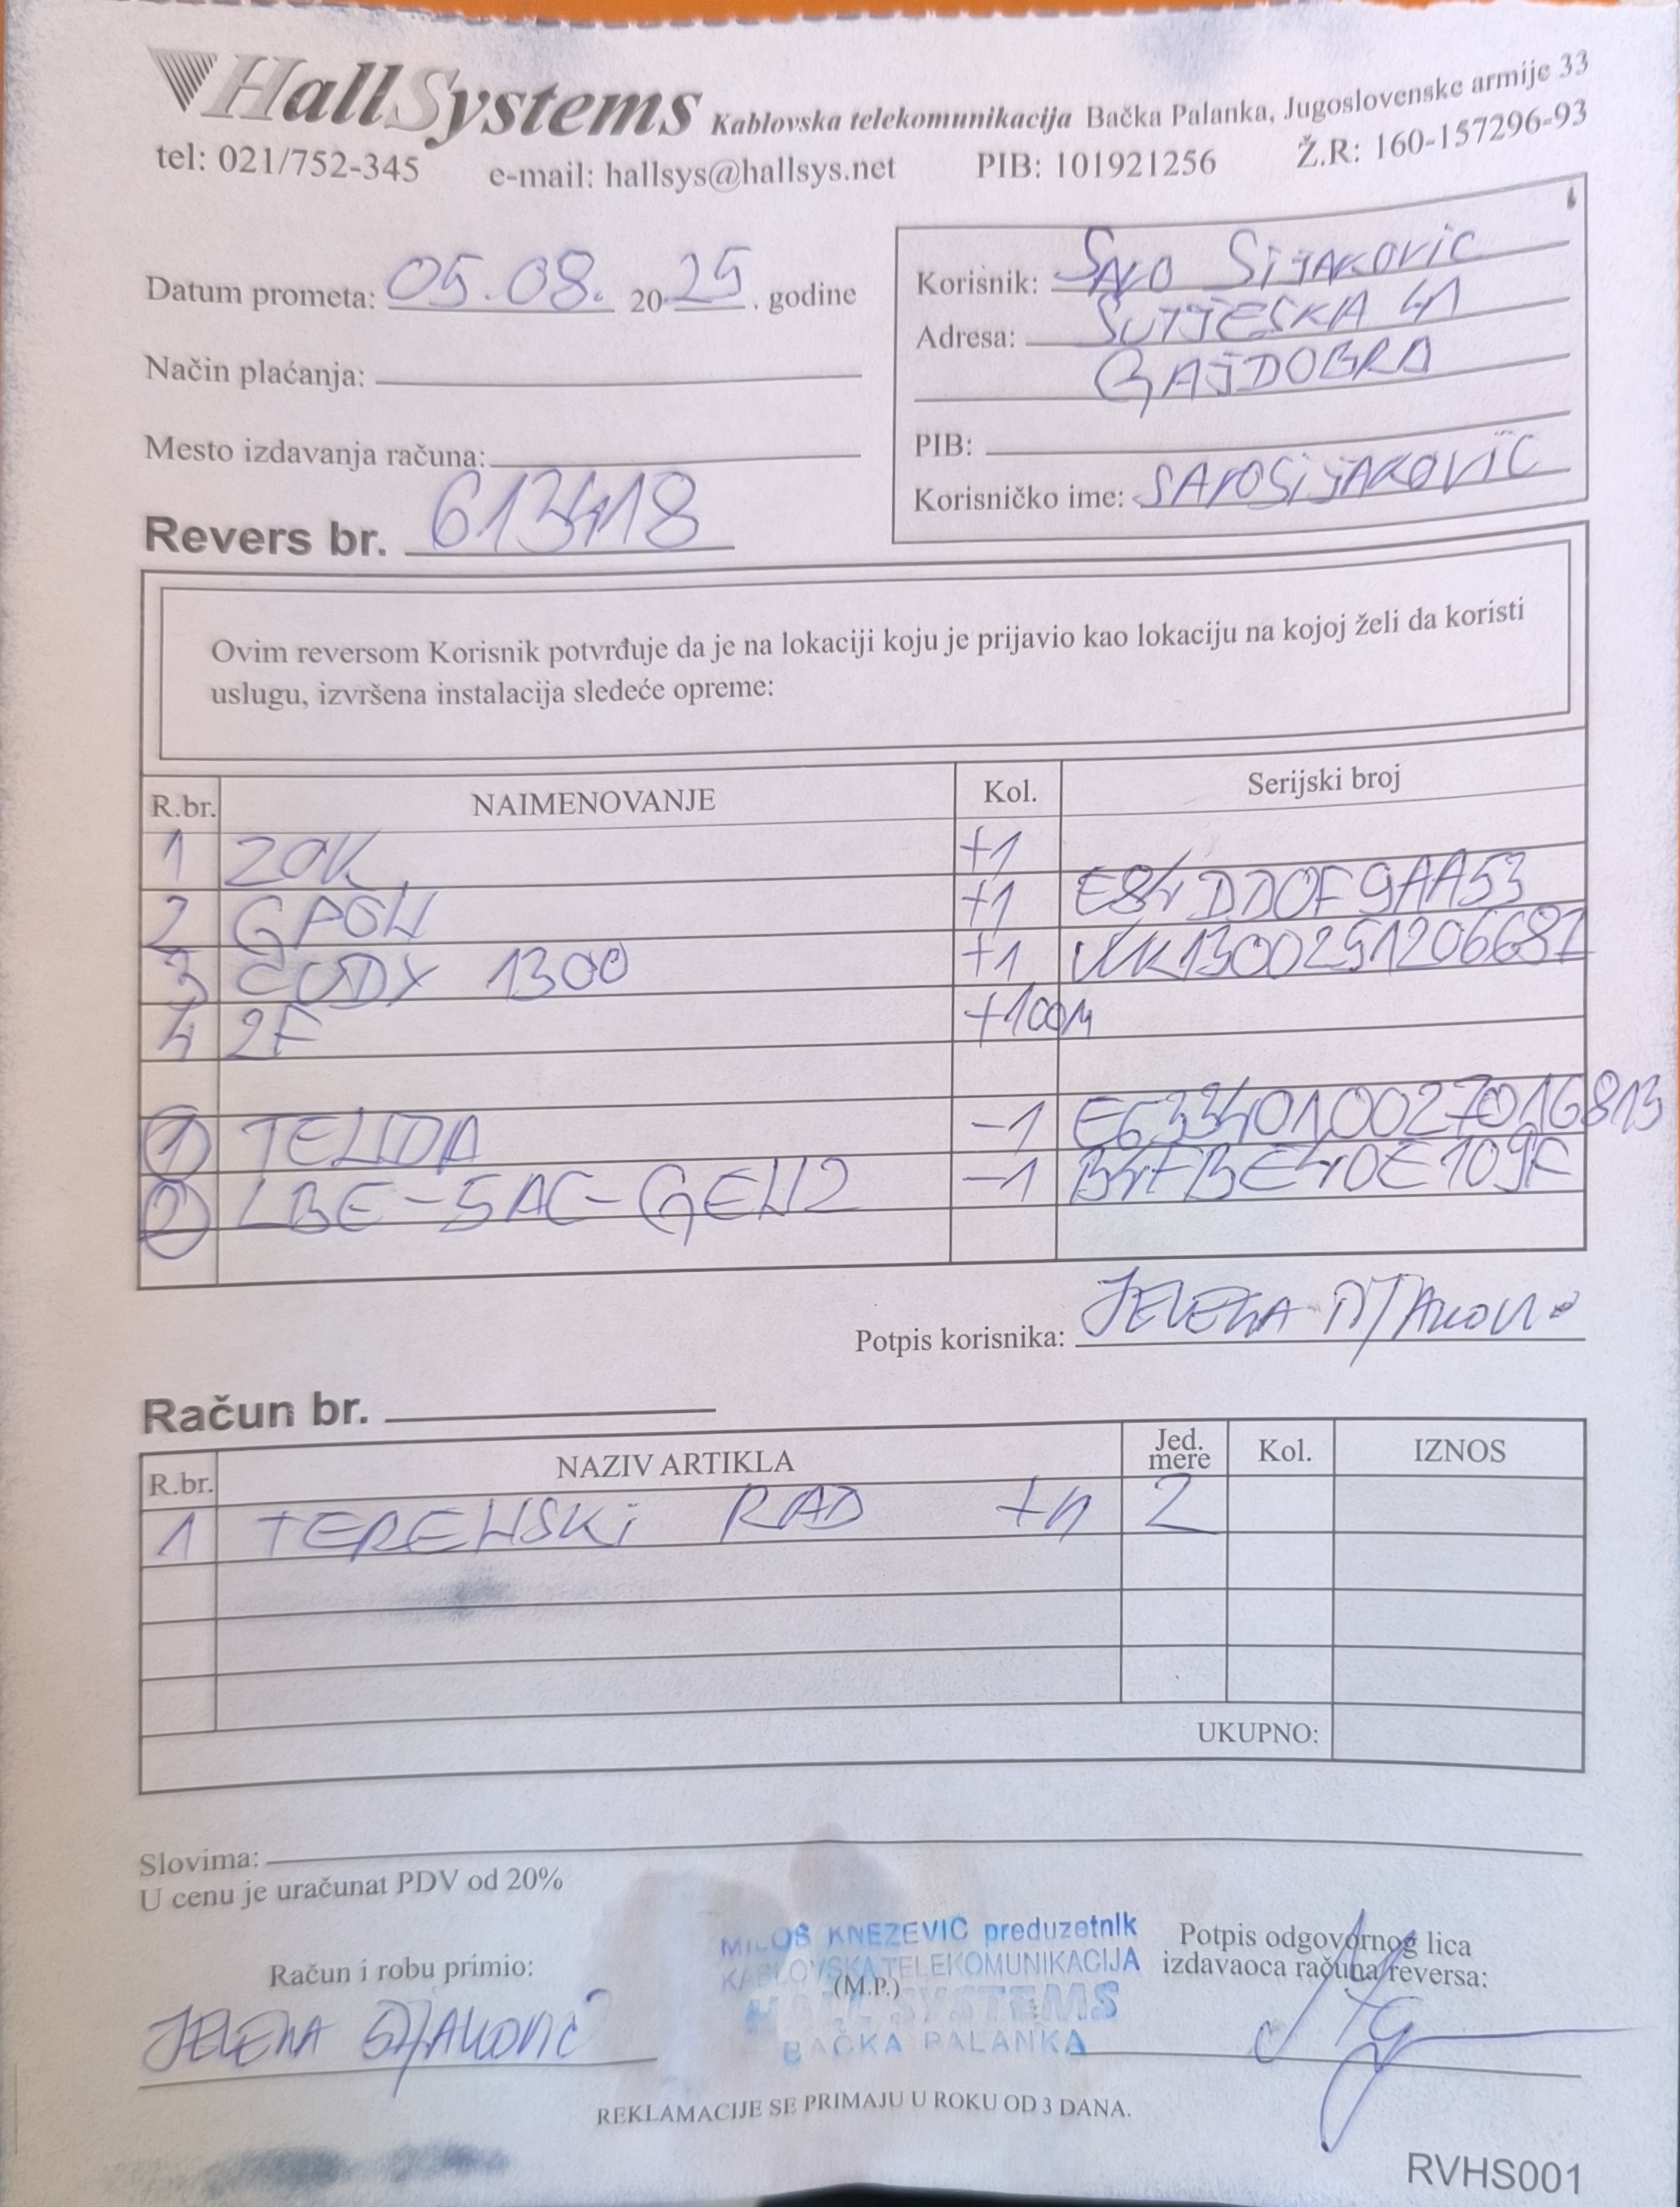 HallSystems Kablovska telekomunikacija Bačka Palanka, Jugoslovenske armije 33
tel: 021/752-345 e-mail: hallsys@hallsys.net PIB: 101921256 Ž.R: 160-157296-93
Datum prometa: 05.08. 2025. godine
Način plaćanja:
Mesto izdavanja računa:
Revers br. 613418
Korisnik: SIJAKOVIC
Adresa: SUTJESKA 41
GAJDOBRA
PIB:
Korisničko ime:
Ovim reversom Korisnik potvrđuje da je na lokaciji koju je prijavio kao lokaciju na kojoj želi da koristi
uslugu, izvršena instalacija sledeće opreme:
R.br. NAIMENOVANJE Kol. Serijski broj
1 ZOK +1
2 GPON +1 E84DD0F9AA53
3 CUDY 1300 +1
4 2F +100M
1 TENDA -1 E6334010027016813
2 LBE-5AC-GEN2 -1 B4FBE40E109F
Potpis korisnika: JELENA
Račun br.
R.br. NAZIV ARTIKLA Jed. mere Kol. IZNOS
1 TERENSKI RAD 2
UKUPNO:
Slovima:
U cenu je uračunat PDV od 20%
Računi robu primio:
JELENA SIJAKOVIĆ
MILOŠ KNEZEVIC preduzetnik
KABLOVSKA TELEKOMUNIKACIJA
(M.P.)
HALL SYSTEMS
BAČKA PALANKA
Potpis odgovornog lica
izdavaoca računa/reversa:
REKLAMACIJE SE PRIMAJU U ROKU OD 3 DANA.
RVHS001